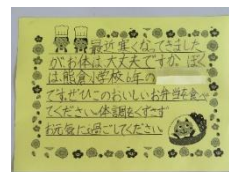 最近寒くなってきました
がお体は、大丈夫ですか。ぼく
は、能倉小学校6年の
です。ぜひこのおいしいお弁当を食べ
てください。体調をくずさず
お元気に過ごしてください。